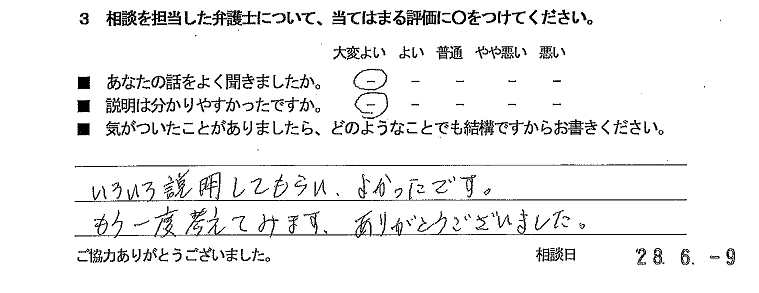 3 相談を担当した弁護士について、当てはまる評価に○をつけてください。
大変よい よい 普通 やや悪い 悪い
■ あなたの話をよく聞きましたか。 - - - - -
■ 説明は分かりやすかったですか。 - - - - -
■ 気がついたことがありましたら、どのようなことでも結構ですからお書きください。
いろいろ説明してもらい、よかったです。
もう一度考えてみます、ありがとうございました。
ご協力ありがとうございました。 相談日 28. 6. -9